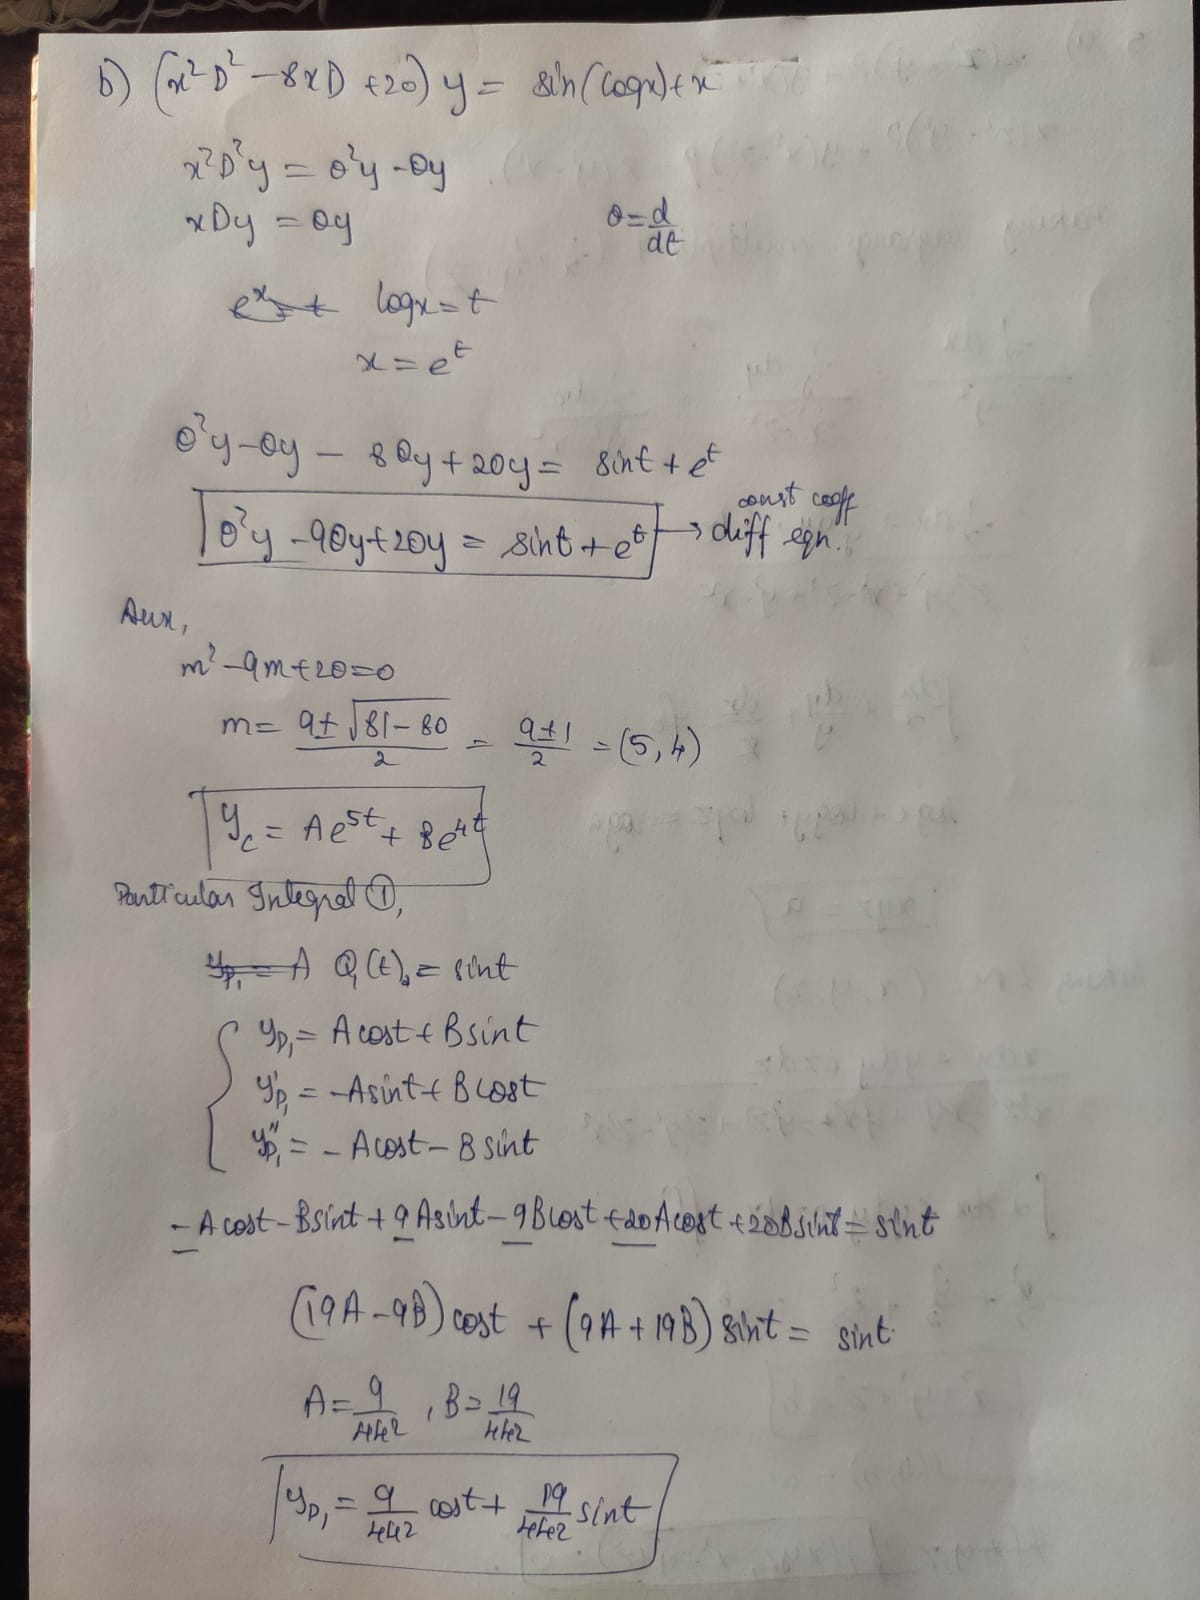 b) (x²D² - 8xD + 20) y = sin(logx) + x
x²D²y = θ²y - θy
xDy = θy θ = d/dt
logx = t
x = e^t
θ²y - θy - 8θy + 20y = sint + e^t
θ²y - 9θy + 20y = sint + e^t → const coeff diff eqn.
Aux,
m² - 9m + 20 = 0
m = (9 ± √(81 - 80))/2 = (9 ± 1)/2 = (5, 4)
y_c = Ae^5t + Be^4t
Particular Integral ①,
Q(t) = sint
y_p₁ = A cost + B sint
y'_p₁ = -A sint + B cost
y''_p₁ = - A cost - B sint
- A cost - B sint + 9 A sint - 9 B cost + 20 A cost + 20 B sint = sint
(19A - 9B) cost + (9A + 19B) sint = sint
A = 9/442 , B = 19/442
y_p₁ = 9/442 cost + 19/442 sint